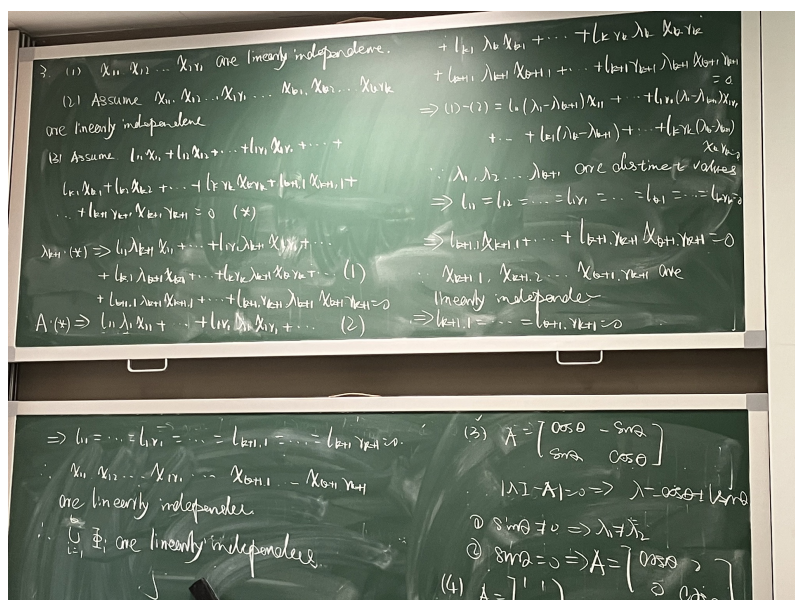 3. (1) X₁₁ X₁₂ ... X₁r₁ are linearly independene.
(2) Assume X₁₁ X₁₂ ... X₁r₁ ... Xk₁ Xk₂ ... Xkrk
are linearly independene
(3) Assume l₁₁X₁₁ + l₁₂X₁₂ + ... + l₁r₁X₁r₁ + ... +
lk₁Xk₁ + lk₂Xk₂ + ... + lkrkXkrk + lk+1,1Xk+1,1 +
... + lk+1 rk+1 Xk+1 rk+1 = 0 (*)
λk+1·(*) ⇒ l₁₁λk+1X₁₁ + ... + l₁r₁λk+1X₁r₁ + ...
+ lk₁λk+1Xk₁ + ... + lkrkλk+1Xkrk + ... (1)
+ lk+1,1λk+1Xk+1,1 + ... + lk+1,rk+1λk+1Xk+1 rk+1 = 0
A·(*) ⇒ l₁₁λ₁X₁₁ + ... + l₁r₁λ₁X₁r₁ + ... (2)
+ lk₁λkXk₁ + ... + lkrkλkXkrk
+ lk+1,1λk+1Xk+1,1 + ... + lk+1rk+1λk+1Xk+1 rk+1
= 0
⇒ (1)-(2) = l₁₁(λ₁-λk+1)X₁₁ + ... + l₁r₁(λ₁-λk+1)X₁r₁
+ ... + lk₁(λk-λk+1) + ... + lkrk(λk-λk+1)
Xkrk=0
∵ λ₁, λ₂ ... λk+1 are distinet values
⇒ l₁₁ = l₁₂ = ... = l₁r₁ = ... = lk₁ = ... = lkrk=0
⇒ lk+1,1Xk+1,1 + ... + lk+1,rk+1Xk+1,rk+1 = 0
∵ Xk+1,1, Xk+1,2 ... Xk+1,rk+1 are
linearly independe
⇒ lk+1,1 = ... = lk+1,rk+1 = 0
⇒ l₁₁ = ... = l₁r₁ = ... = lk+1,1 = ... = lk+1 rk+1 = 0.
∴ X₁₁ X₁₂ ... X₁r₁ ... Xk+1,1 ... Xk+1 rk+1
are linearly independene.
∴ ∪ Φi are linearly independene
i=1
(3) A = [cosθ -sinθ
sinθ cosθ]
|λI-A|=0 ⇒ λ=cosθ± isinθ
① sinθ≠0 ⇒ λ₁≠λ₂
② sinθ=0 ⇒ A = [cosθ 0
0
(4) A = [1 1